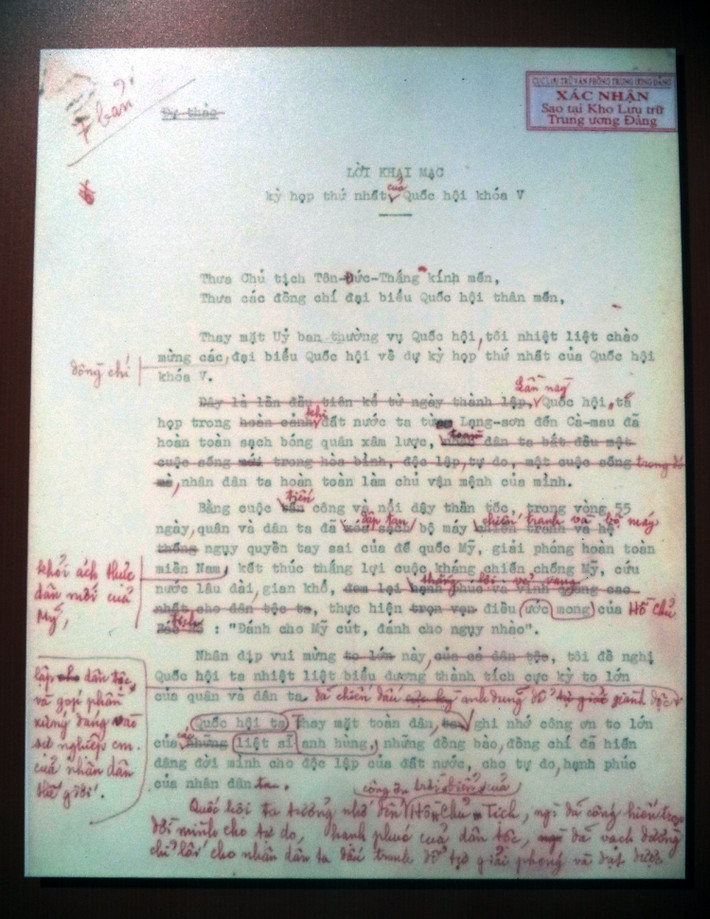 7 bản
Dự thảo
CỤC LƯU TRỮ VĂN PHÒNG TRUNG ƯƠNG ĐẢNG
XÁC NHẬN
Sao tại Kho Lưu trữ
Trung ương Đảng
LỜI KHAI MẠC
kỳ họp thứ nhất của Quốc hội khóa V
Thưa Chủ tịch Tôn-Đức-Thắng kính mến,
Thưa các đồng chí đại biểu Quốc hội thân mến,
Thay mặt Uỷ ban thường vụ Quốc hội, tôi nhiệt liệt chào
đồng chí
mừng các, đại biểu Quốc hội về dự kỳ họp thứ nhất của Quốc hội
khóa V.
Lần này
Đây là lần đầu tiên kể từ ngày thành lập, Quốc hội, ta
khi
họp trong hoàn cảnh đất nước ta từ Lạng-sơn đến Cà-mau đã
hoàn toàn sạch bóng quân xâm lược, nhân dân ta bắt đầu một
cuộc sống mới trong hòa bình, độc lập, tự do, một cuộc sống trong đó
mà, nhân dân ta hoàn toàn làm chủ vận mệnh của mình.
tiến
Bằng cuộc tấn công và nổi dậy thần tốc, trong vòng 55
đập tan chiến tranh và bộ máy
ngày, quân và dân ta đã xóa sạch bộ máy chiến tranh và hệ
thống ngụy quyền tay sai của đế quốc Mỹ, giải phóng hoàn toàn
khỏi ách thực
dân mới của
Mỹ,
miền Nam, kết thúc thắng lợi cuộc kháng chiến chống Mỹ, cứu
thắng lợi vẻ vang
nước lâu dài, gian khổ, đem lại hạnh phúc và vinh quang cao
nhất cho dân tộc ta, thực hiện trọn vẹn điều ước mong của Hồ Chủ
tịch
Bác Hồ : "Đánh cho Mỹ cút, đánh cho ngụy nhào".
Nhân dịp vui mừng to lớn này, của cả dân tộc, tôi đề nghị
Quốc hội ta nhiệt liệt biểu dương thành tích cực kỳ to lớn
của quân và dân ta đã chiến đấu cực kỳ anh dũng để giành độc
lập cho dân tộc,
và góp phần
xứng đáng vào
sự nghiệp cm.
của nhân dân
thế giới.
Quốc hội ta thay mặt toàn dân, ghi nhớ công ơn to lớn
các
của những liệt sĩ anh hùng, những đồng bào, đồng chí đã hiến
dâng đời mình cho độc lập của đất nước, cho tự do, hạnh phúc
của nhân dân ta.
công ơn trời biển của
Quốc hội ta tưởng nhớ đến Hồ Chủ Tịch, người đã cống hiến trọn
đời mình cho tự do, hạnh phúc của dân tộc, đã vạch đường
chỉ lối cho nhân dân ta đấu tranh để tự giải phóng và đạt được